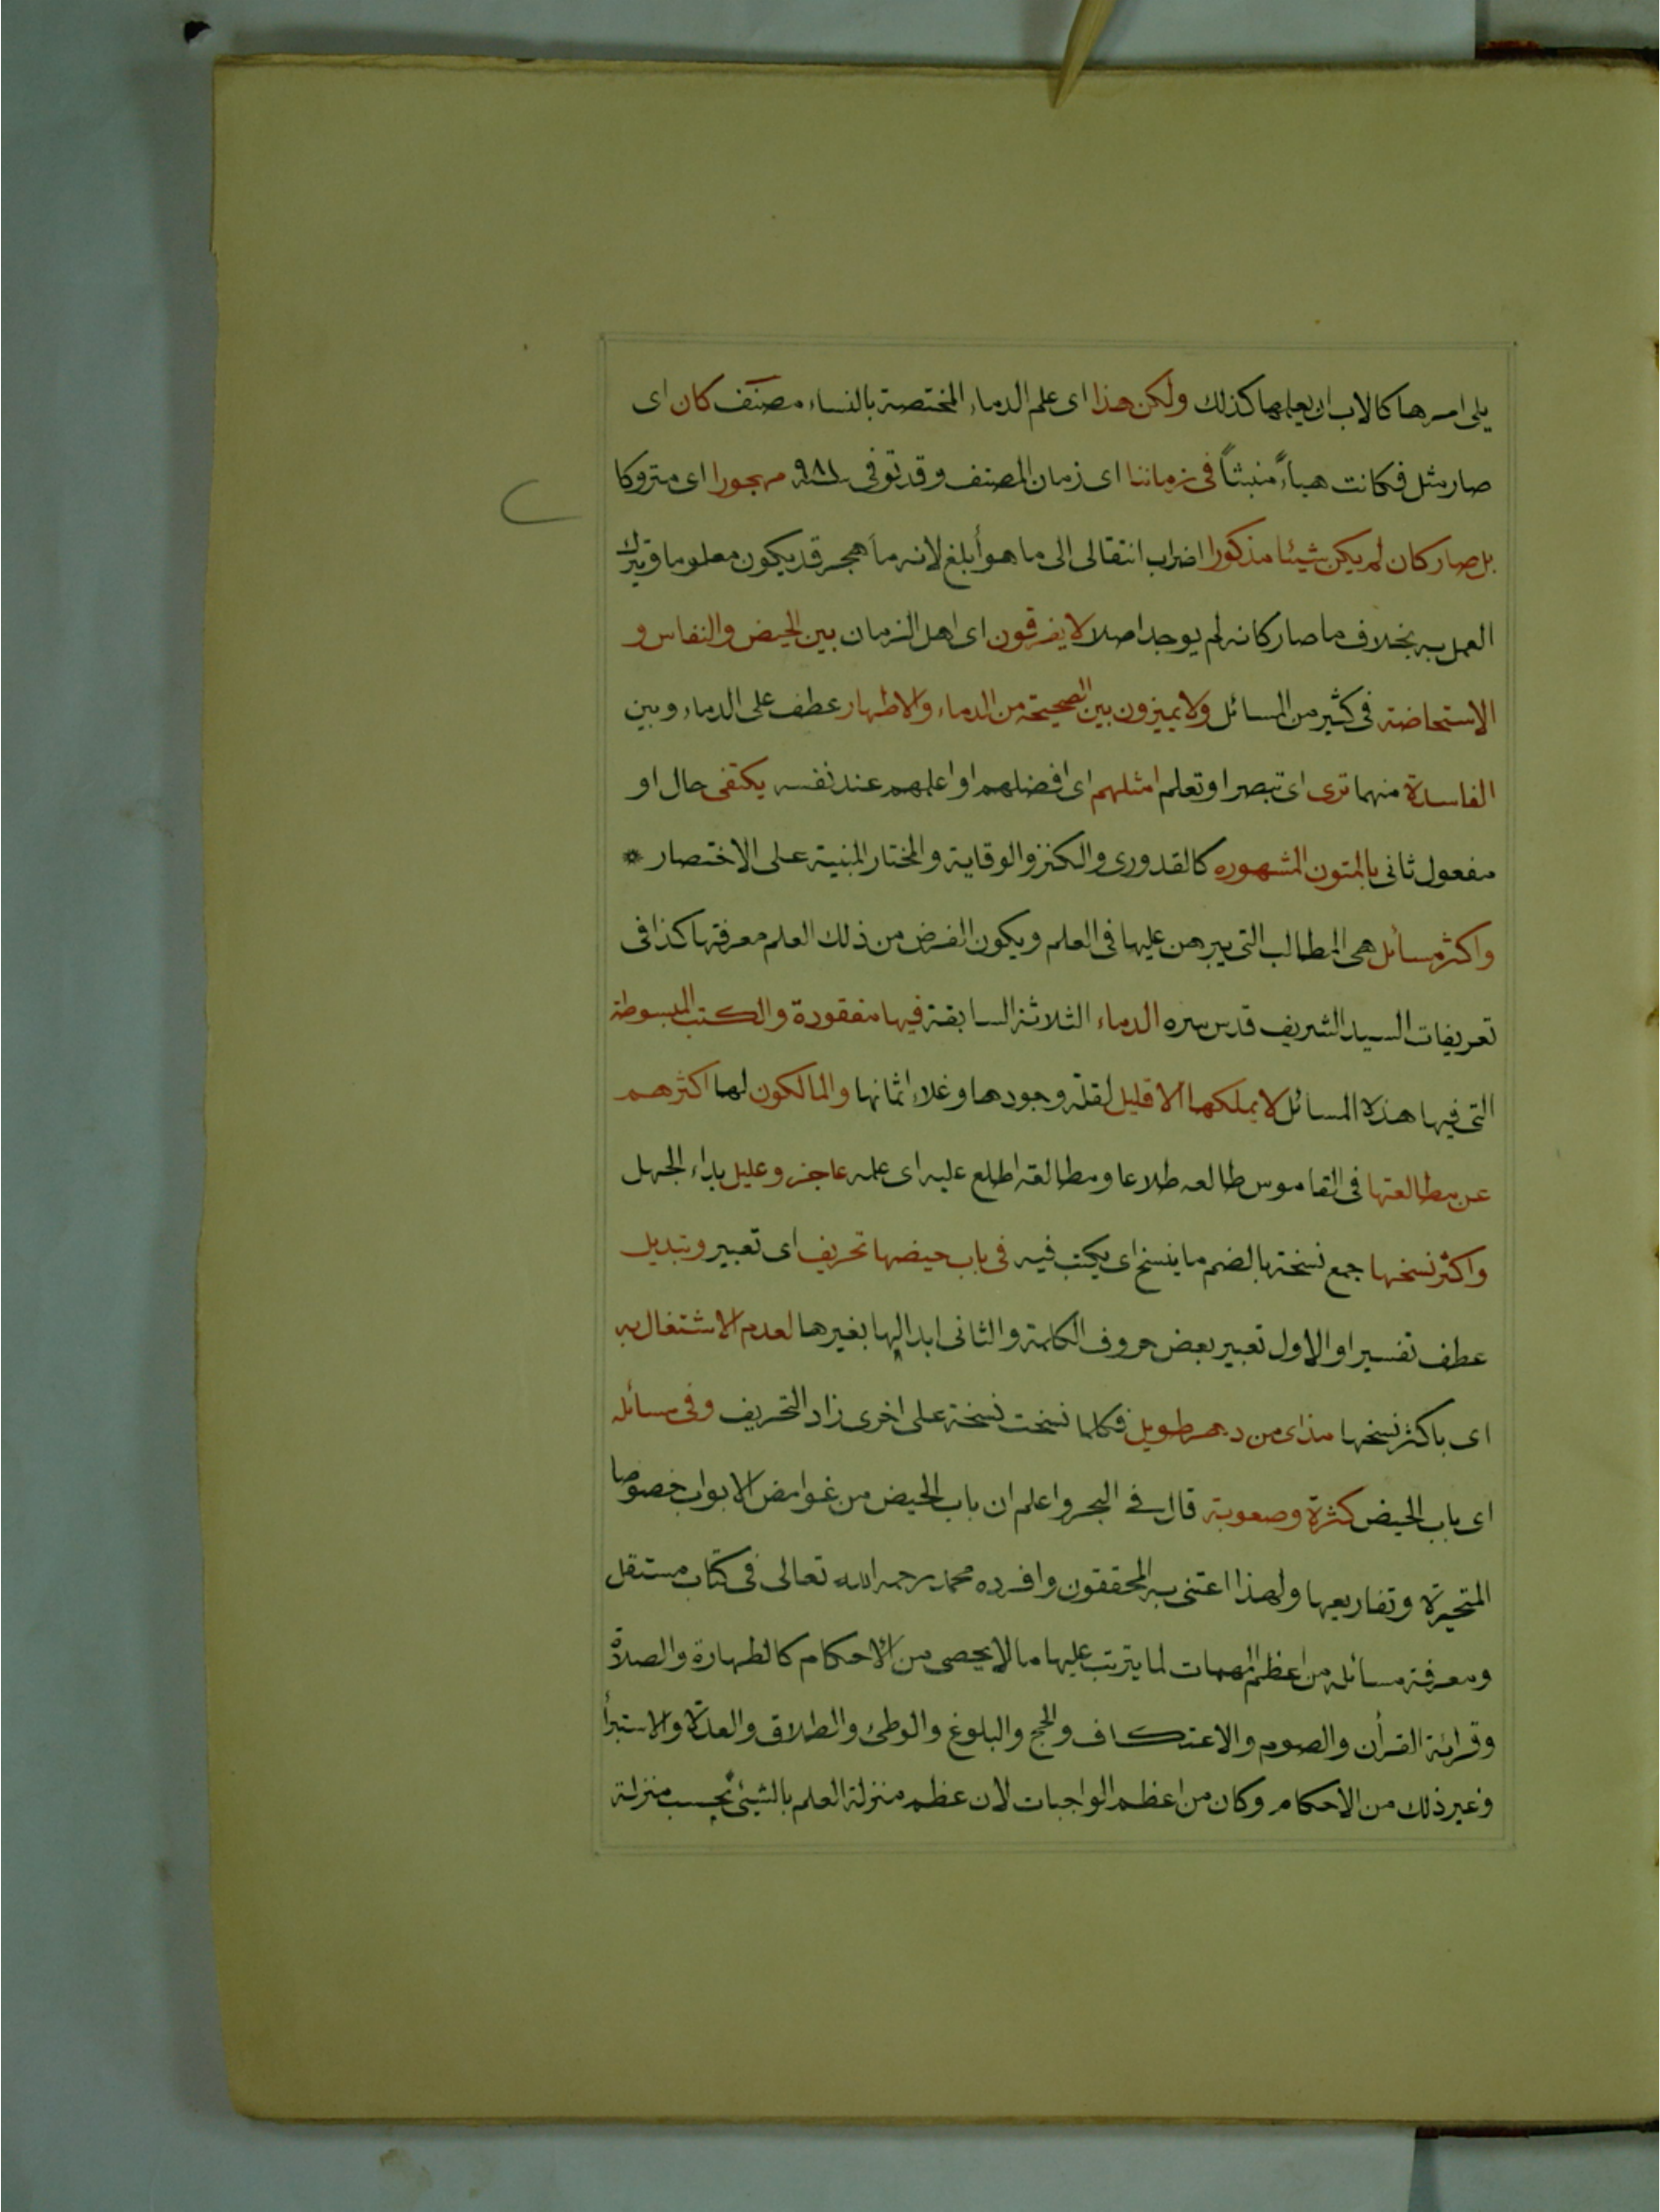 يلى امرها كالاب ان يعلمها كذلك ولكن هذا اى علم الدماء المختصة بالنساء مصنف كان اى
صار مثل فكانت هباءً منبثاً فى زماننا اى زمان المصنف وقد توفى ٩٨١ مهجورا اى متروكا
بل صار كان لم يكن شيئا مذكورا اضراب انتقالى الى ما هو أبلغ لانه ما هجر قد يكون معلوما وترك
العمل به بخلاف ما صار كانه لم يوجد اصلا لا يفرقون اى اهل الزمان بين الحيض والنفاس و
الاستحاضة فى كثير من المسائل ولا يميزون بين الصحيحة من الدماء والاطهار عطف على الدماء وبين
الفاسدة منهما ترى اى تبصر او تعلم امثلهم اى افضلهم او اعلمهم عند نفسه يكتفى حال او
مفعول ثانى بالمتون المشهوره كالقدورى والكنز والوقاية والمختار المبنية على الاختصار *
واكثر مسائل هى المطالب التى يبرهن عليها فى العلم ويكون الغرض من ذلك العلم معرفتها كذا فى
تعريفات السيد الشريف قدس سره الدماء الثلاثة السابقة فيها مفقودة والكتب المبسوطة
التى فيها هذه المسائل لا يملكها الا قليل لقلة وجودها وغلاء اثمانها والمالكون لها اكثرهم
عن مطالعتها فى القاموس طالعه طلاعا ومطالعة اطلع عليه اى علمه عاجز وعليل بداء الجهل
واكثر نسخها جمع نسخة بالضم ما ينسخ اى يكتب فيه فى باب حيضها تحريف اى تعبير وتبديل
عطف تفسير او الاول تعبير بعض حروف الكلمة والثانى ابدالها بغيرها لعدم الاشتغال به
اى باكثر نسخها مذ اى من دهر طويل فكلما نسخت نسخة على اخرى زاد التحريف وفى مسائله
اى باب الحيض كثرة وصعوبة قال فى البحر واعلم ان باب الحيض من غوامض الابواب خصوصا
المتحيرة وتفاريعها ولهذا اعتنى به المحققون وافرده محمد رحمه الله تعالى فى كتاب مستقل
ومعرفة مسائله من اعظم المهمات لما يترتب عليها ما لا يحصى من الاحكام كالطهارة والصلاة
وقرائة القرأن والصوم والاعتكاف والحج والبلوغ والوطئ والطلاق والعدة والاستبرأ
وغير ذلك من الاحكام وكان من اعظم الواجبات لان عظم منزلة العلم بالشيئ بحسب منزلة